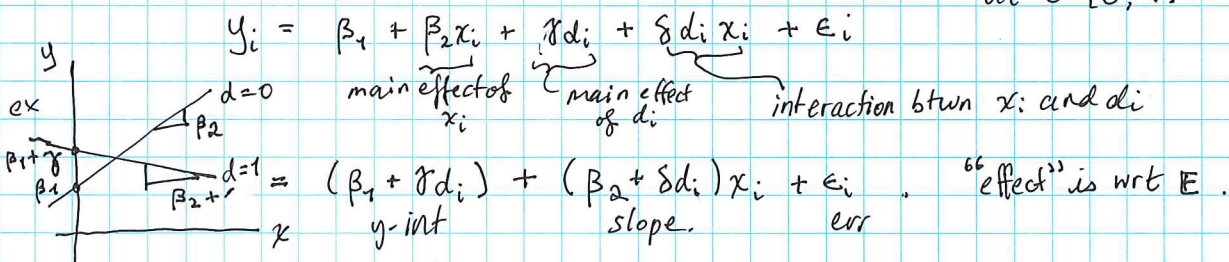 y_i = β_1 + β_2 x_i + γ d_i + δ d_i x_i + ε_i
main effect of x_i
main effect of d_i
interaction btwn x_i and d_i
y
ex
d=0
β_2
β_1+γ
β_1
d=1
β_2+
x
= (β_1 + γ d_i) + (β_2 + δ d_i) x_i + ε_i . "effect" is wrt E.
y-int slope. err